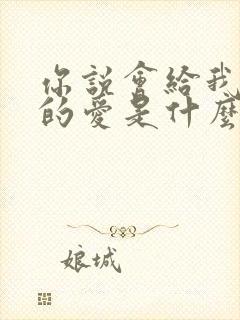 你說會給我
的愛是什麼
娘城